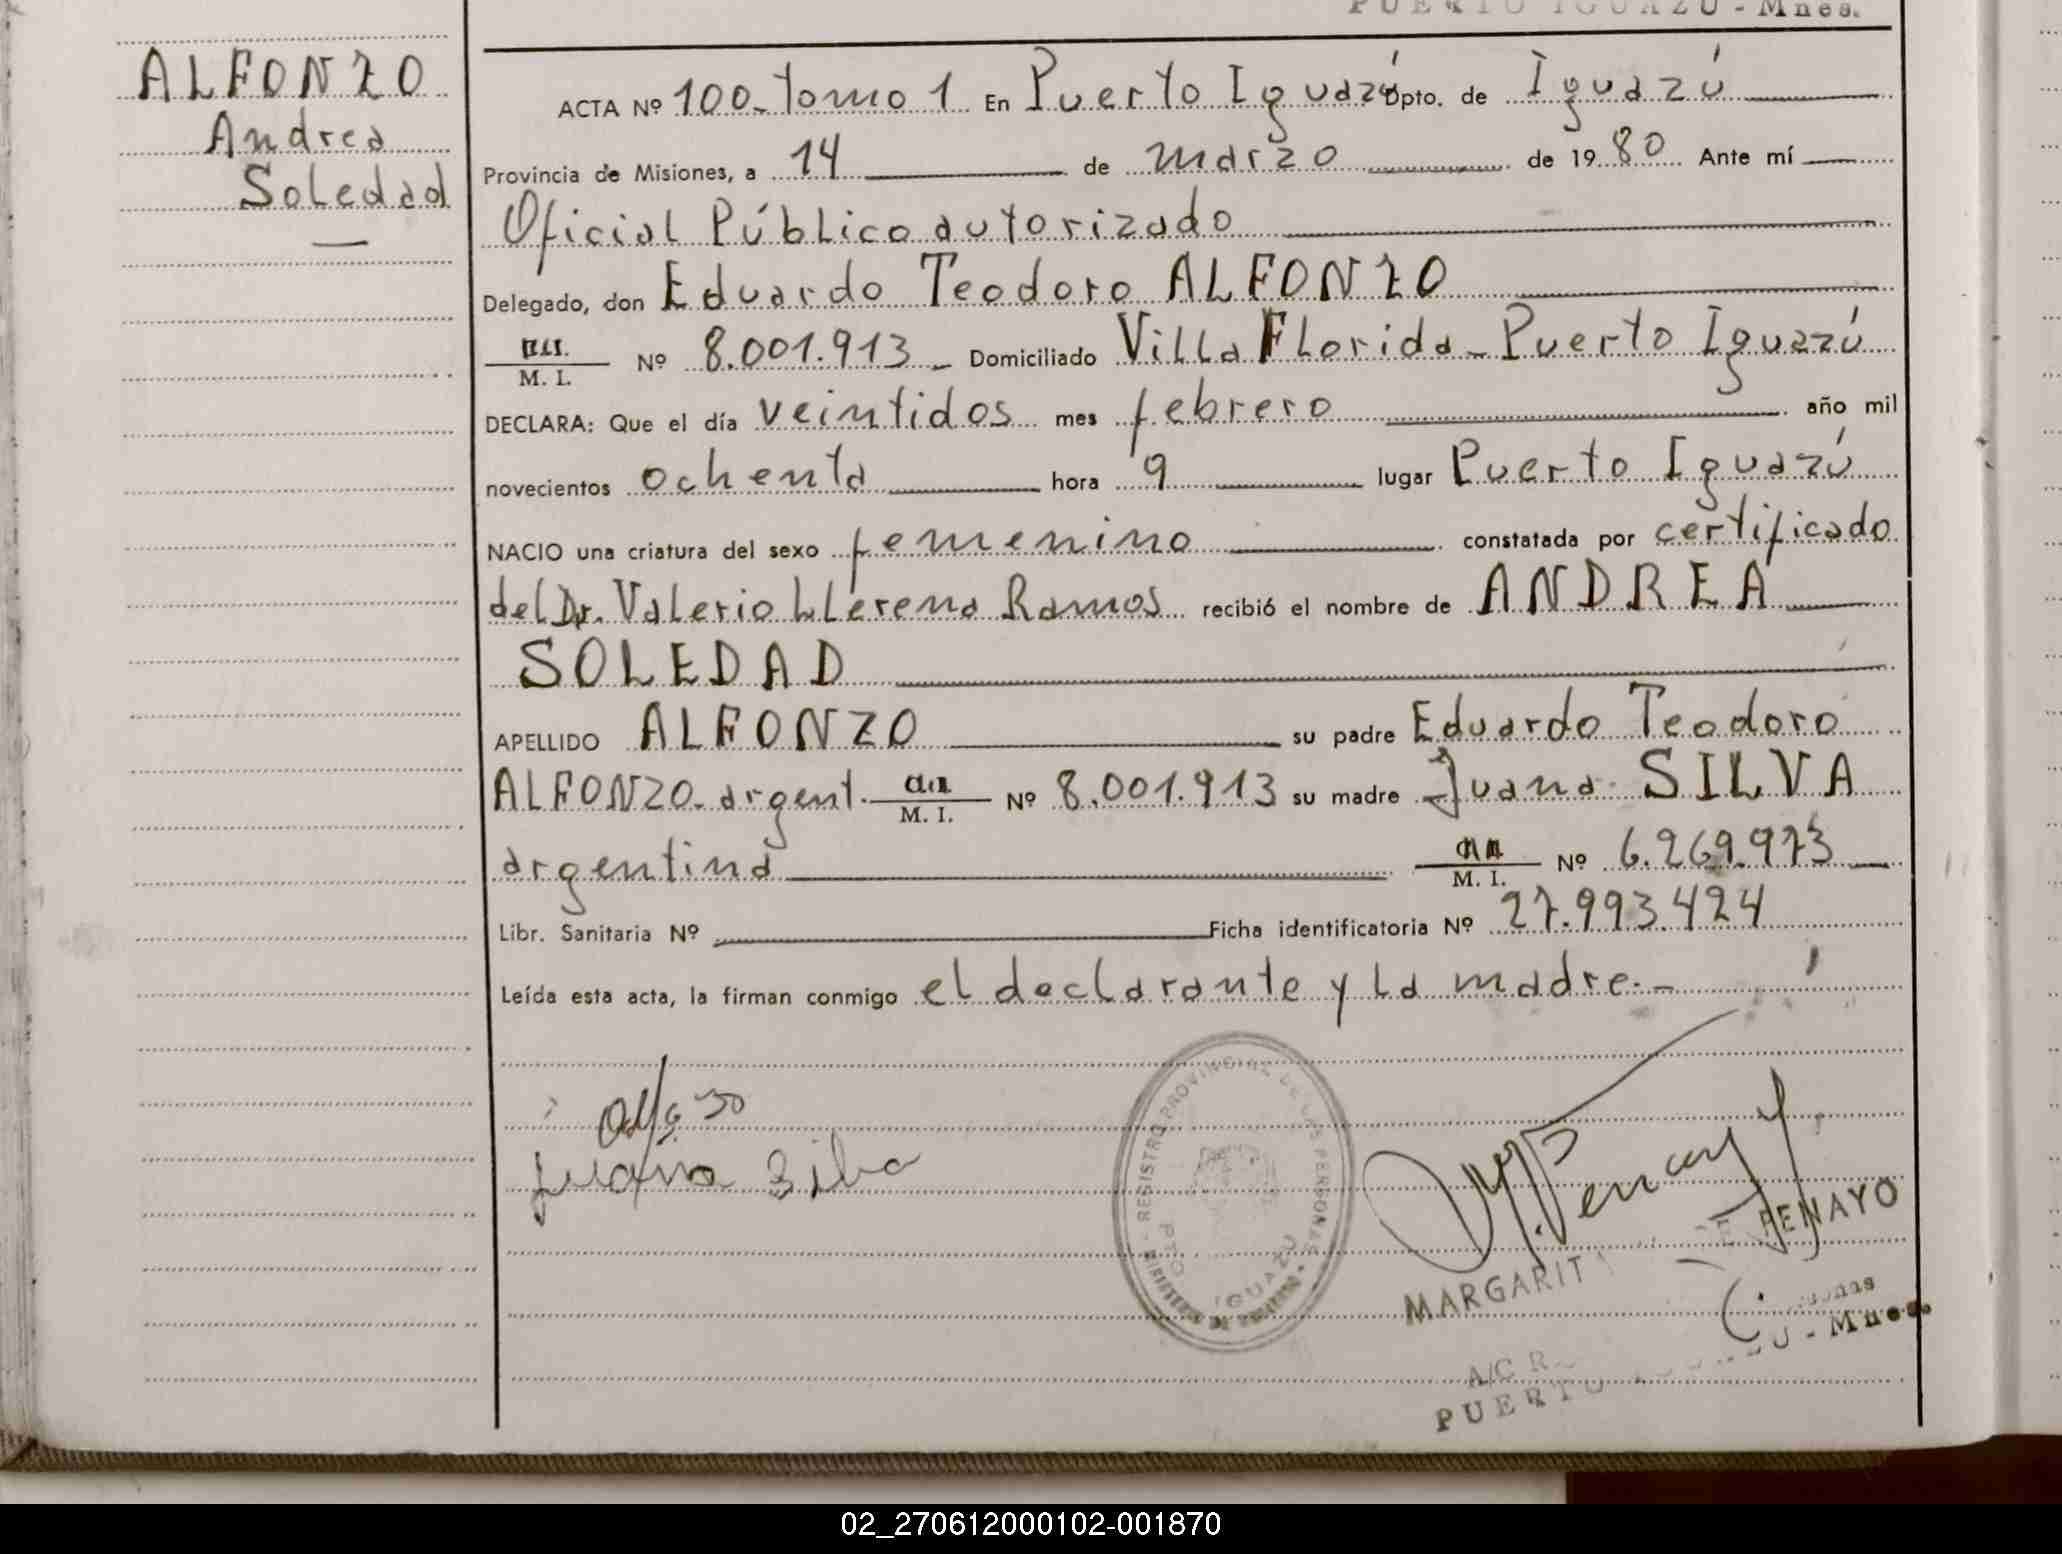 PUERTO IGUAZU - Mnes.
ALFONZO
Andrea
Soledad
ACTA Nº 100-Tomo 1 En Puerto Iguazú Dpto. de Iguazú
Provincia de Misiones, a 14 de marzo de 1980 Ante mí
Oficial Público autorizado
Delegado, don Eduardo Teodoro ALFONZO
M. I. Nº 8.001.913 - Domiciliado Villa Florida - Puerto Iguazú
DECLARA: Que el día veintidos mes febrero año mil
novecientos ochenta hora 9 lugar Puerto Iguazú
NACIO una criatura del sexo femenino constatada por certificado
del Dr. Valerio LLerena Ramos recibió el nombre de ANDREA
SOLEDAD
APELLIDO ALFONZO su padre Eduardo Teodoro
ALFONZO - argent. M. I. Nº 8.001.913 su madre Juana SILVA
argentina M. I. Nº 6.269.973
Libr. Sanitaria Nº Ficha identificatoria Nº 27.993.424
Leída esta acta, la firman conmigo el declarante y la madre.-
Juana Silva
REGISTRO PROVINCIAL DE LAS PERSONAS
PTO. IGUAZU
MARGARIT DE PENAYO
A/C R
PUERTO U - Mnes.
02_270612000102-001870